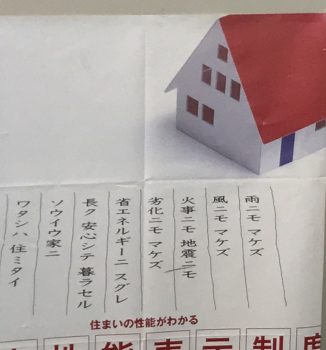 雨ニモ マケズ
風ニモ マケズ
火事ニモ 地震ニモ
劣化ニモ マケズ
省エネルギーニ スグレ
長ク 安心シテ 暮ラセル
ソウイウ家ニ
ワタシハ 住ミタイ
住まいの性能がわかる
性能表示制度